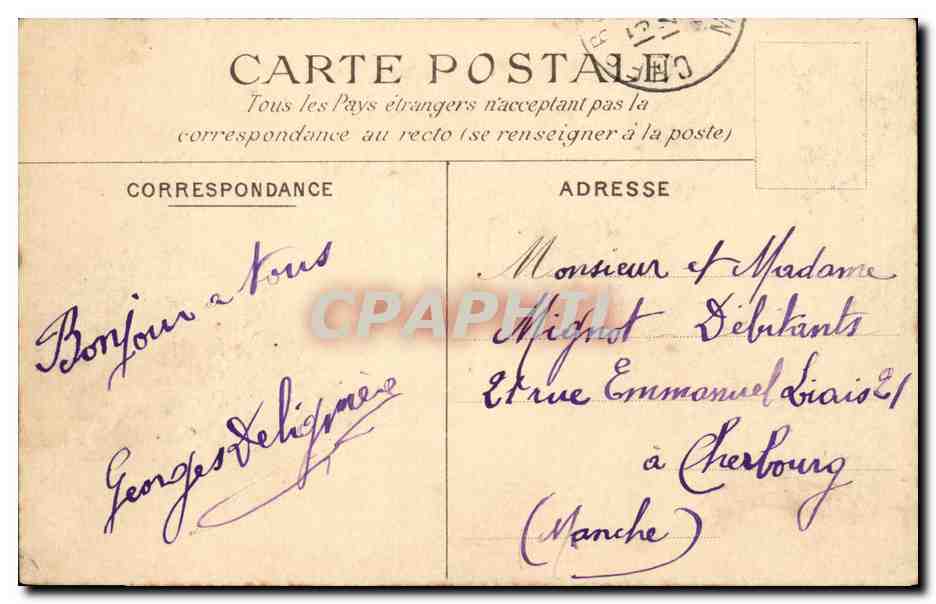 CARTE POSTALE
Tous les Pays étrangers n'acceptant pas la
correspondance au recto (se renseigner à la poste)
CORRESPONDANCE
ADRESSE
Bonjour a Vous
Georges Delignière
Monsieur et Madame
Mignot Débitants
21 rue Emmanuel Liais 21
à Cherbourg
(Manche)
CPAPHIL